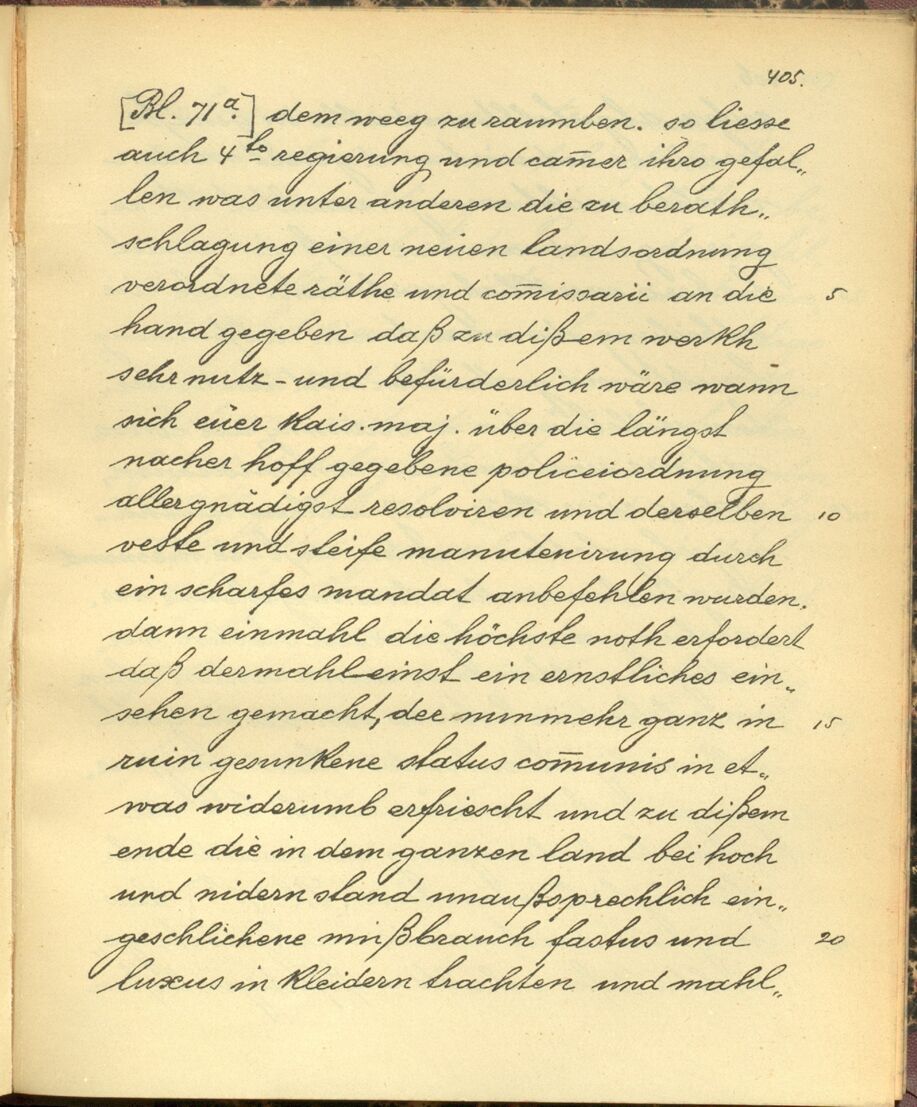 405.
[Bl. 71a.] dem weeg zu raumben. so liesse
auch 4to regierung und cam̄er ihro gefal„
len was unter anderen die zu berath„
schlagung einer neüen landsordnung
verordnete räthe und com̄issarii an die 5
hand gegeben daß zu dißem werkh
sehr nutz - und befürderlich wäre wann̄
sich eüer kais. maj. über die längst
nacher hoff gegebene policeiordnung
allergnädigst resolviren und derselben 10
veste und steife manutenirung durch
ein scharfes mandat anbefehlen wurden.
dann einmahl die höchste noth erfordert
daß dermahleinst ein ernstliches ein„
sehen gemacht, der nunmehr ganz in 15
ruin gesunkene status com̄unis in et„
was widerumb erfriescht und zu dißem
ende die in dem ganzen land bei hoch
und nidern stand unaußsprechlich ein„
geschlichene mißbrauch fastus und 20
luxus in kleidern trachten und mahl„